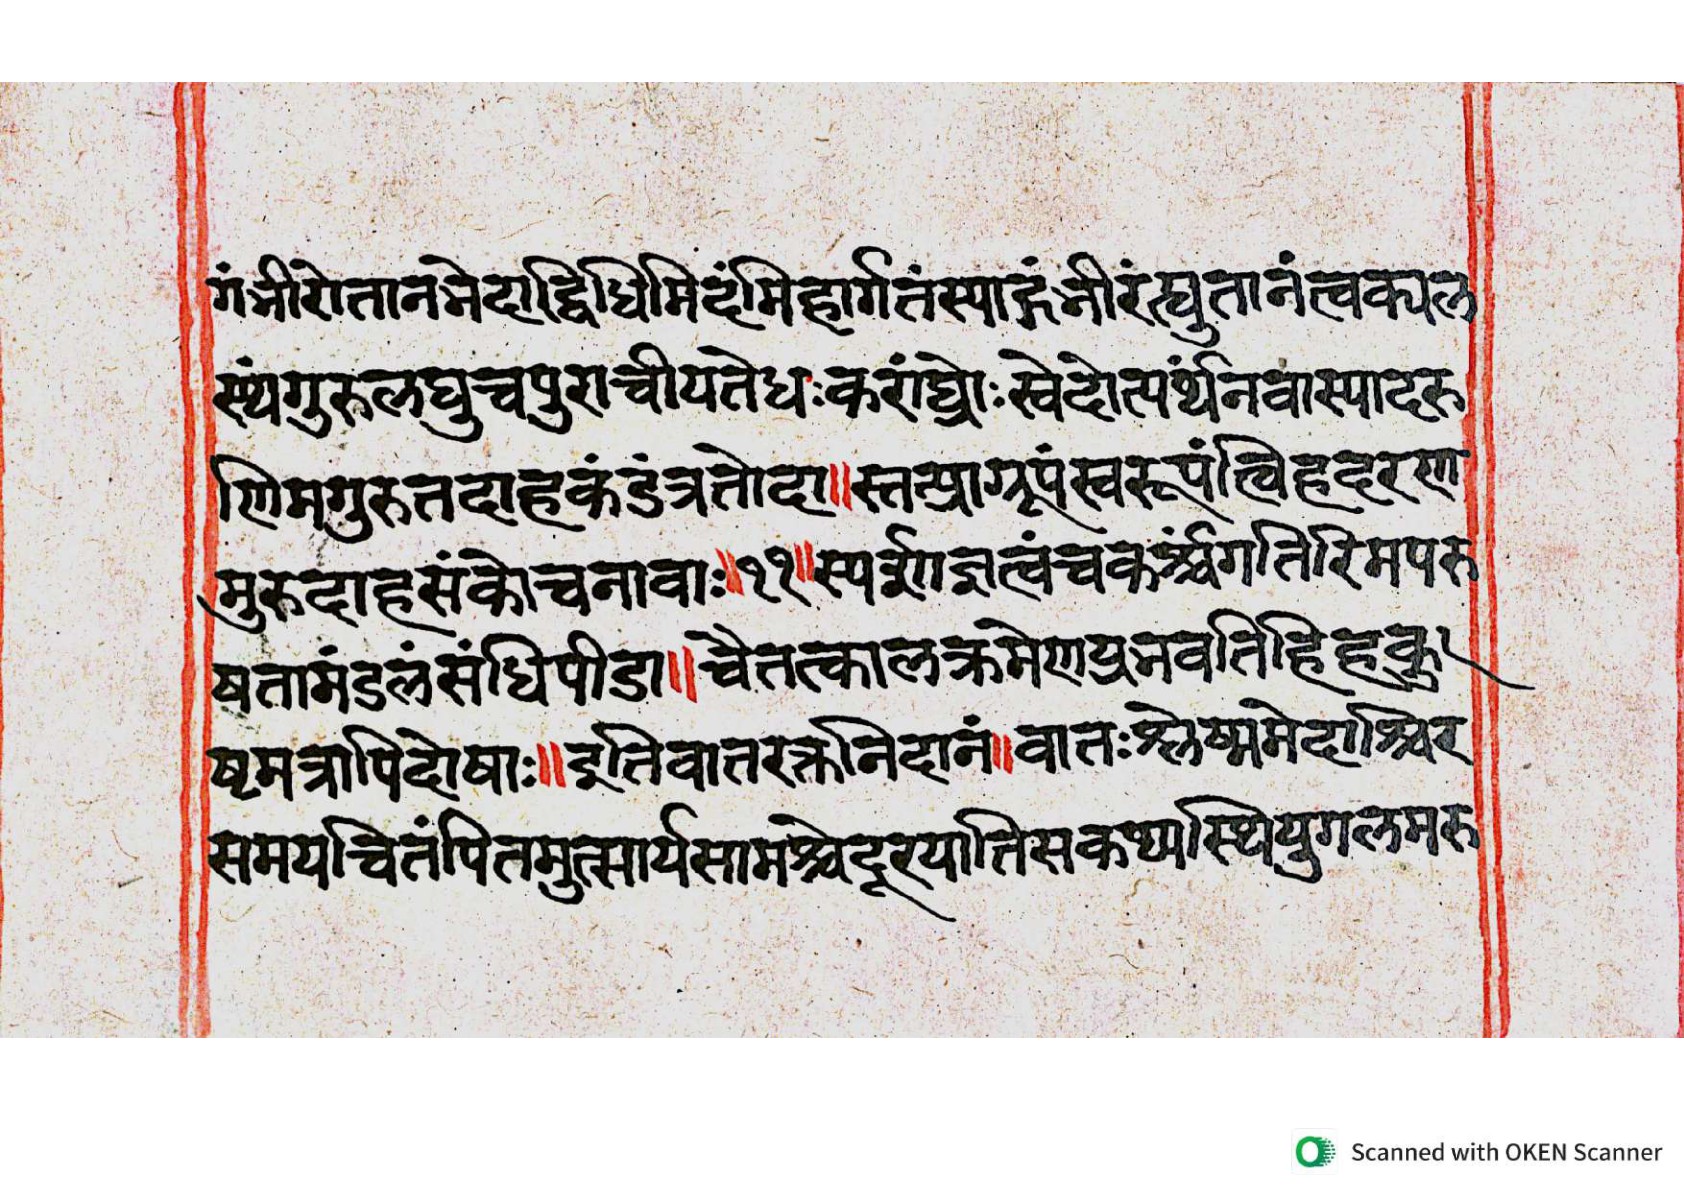 गंभीरोतानभेदाद्विधिमिदंमिहार्गतंस्पाद्गंभीरंत्घुतानंत्वक्पल
स्थंगुरुलघुचपुराचीयतेधःकरांघ्रोःस्वेदोत्पर्थनवास्पादरु
णिमगुरुतदाहकंडंत्रतोदा॥स्तत्प्राग्रूपंस्वरूपंत्विहदरण
मुरुदाहसंकोचनावाः॥११॥स्पर्शाज्ञत्वंचकर्श्यंगतिरिमपरु
षतामंडलंसंधिपीडा॥चैतत्कालक्रमेणप्रभवतिहिहकु
ष्टमत्रापिदोषाः॥इतिवातरक्तनिदानं॥वातःश्लेष्ममेदाश्चिर
समयचितंपितमुत्सार्यसामश्चेदूरयात्तिसकथ्यस्थियुगलमरु
Scanned with OKEN Scanner